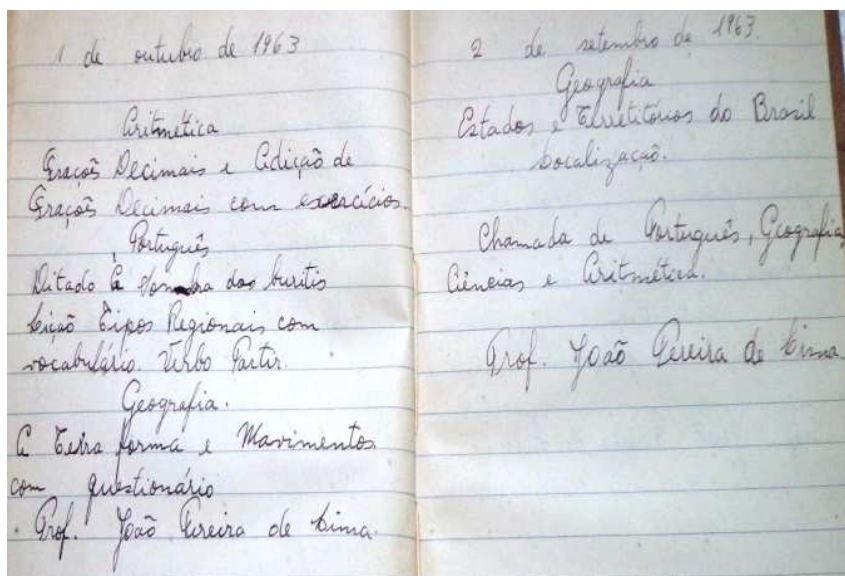 1 de outubro de 1963
Aritmética
Frações Decimais e Adição de
Frações Decimais com exercícios.
Português
Ditado À sombra dos buritis
Lição Tipos Regionais com
vocabulário. Verbo Partir.
Geografia.
A Terra forma e Movimentos
com questionário
Prof. João Pereira de Lima.
2 de setembro de 1963.
Geografia
Estados e Territórios do Brasil
Localização.
Chamada de Português, Geografia
Ciências e Aritmética.
Prof. João Pereira de Lima.